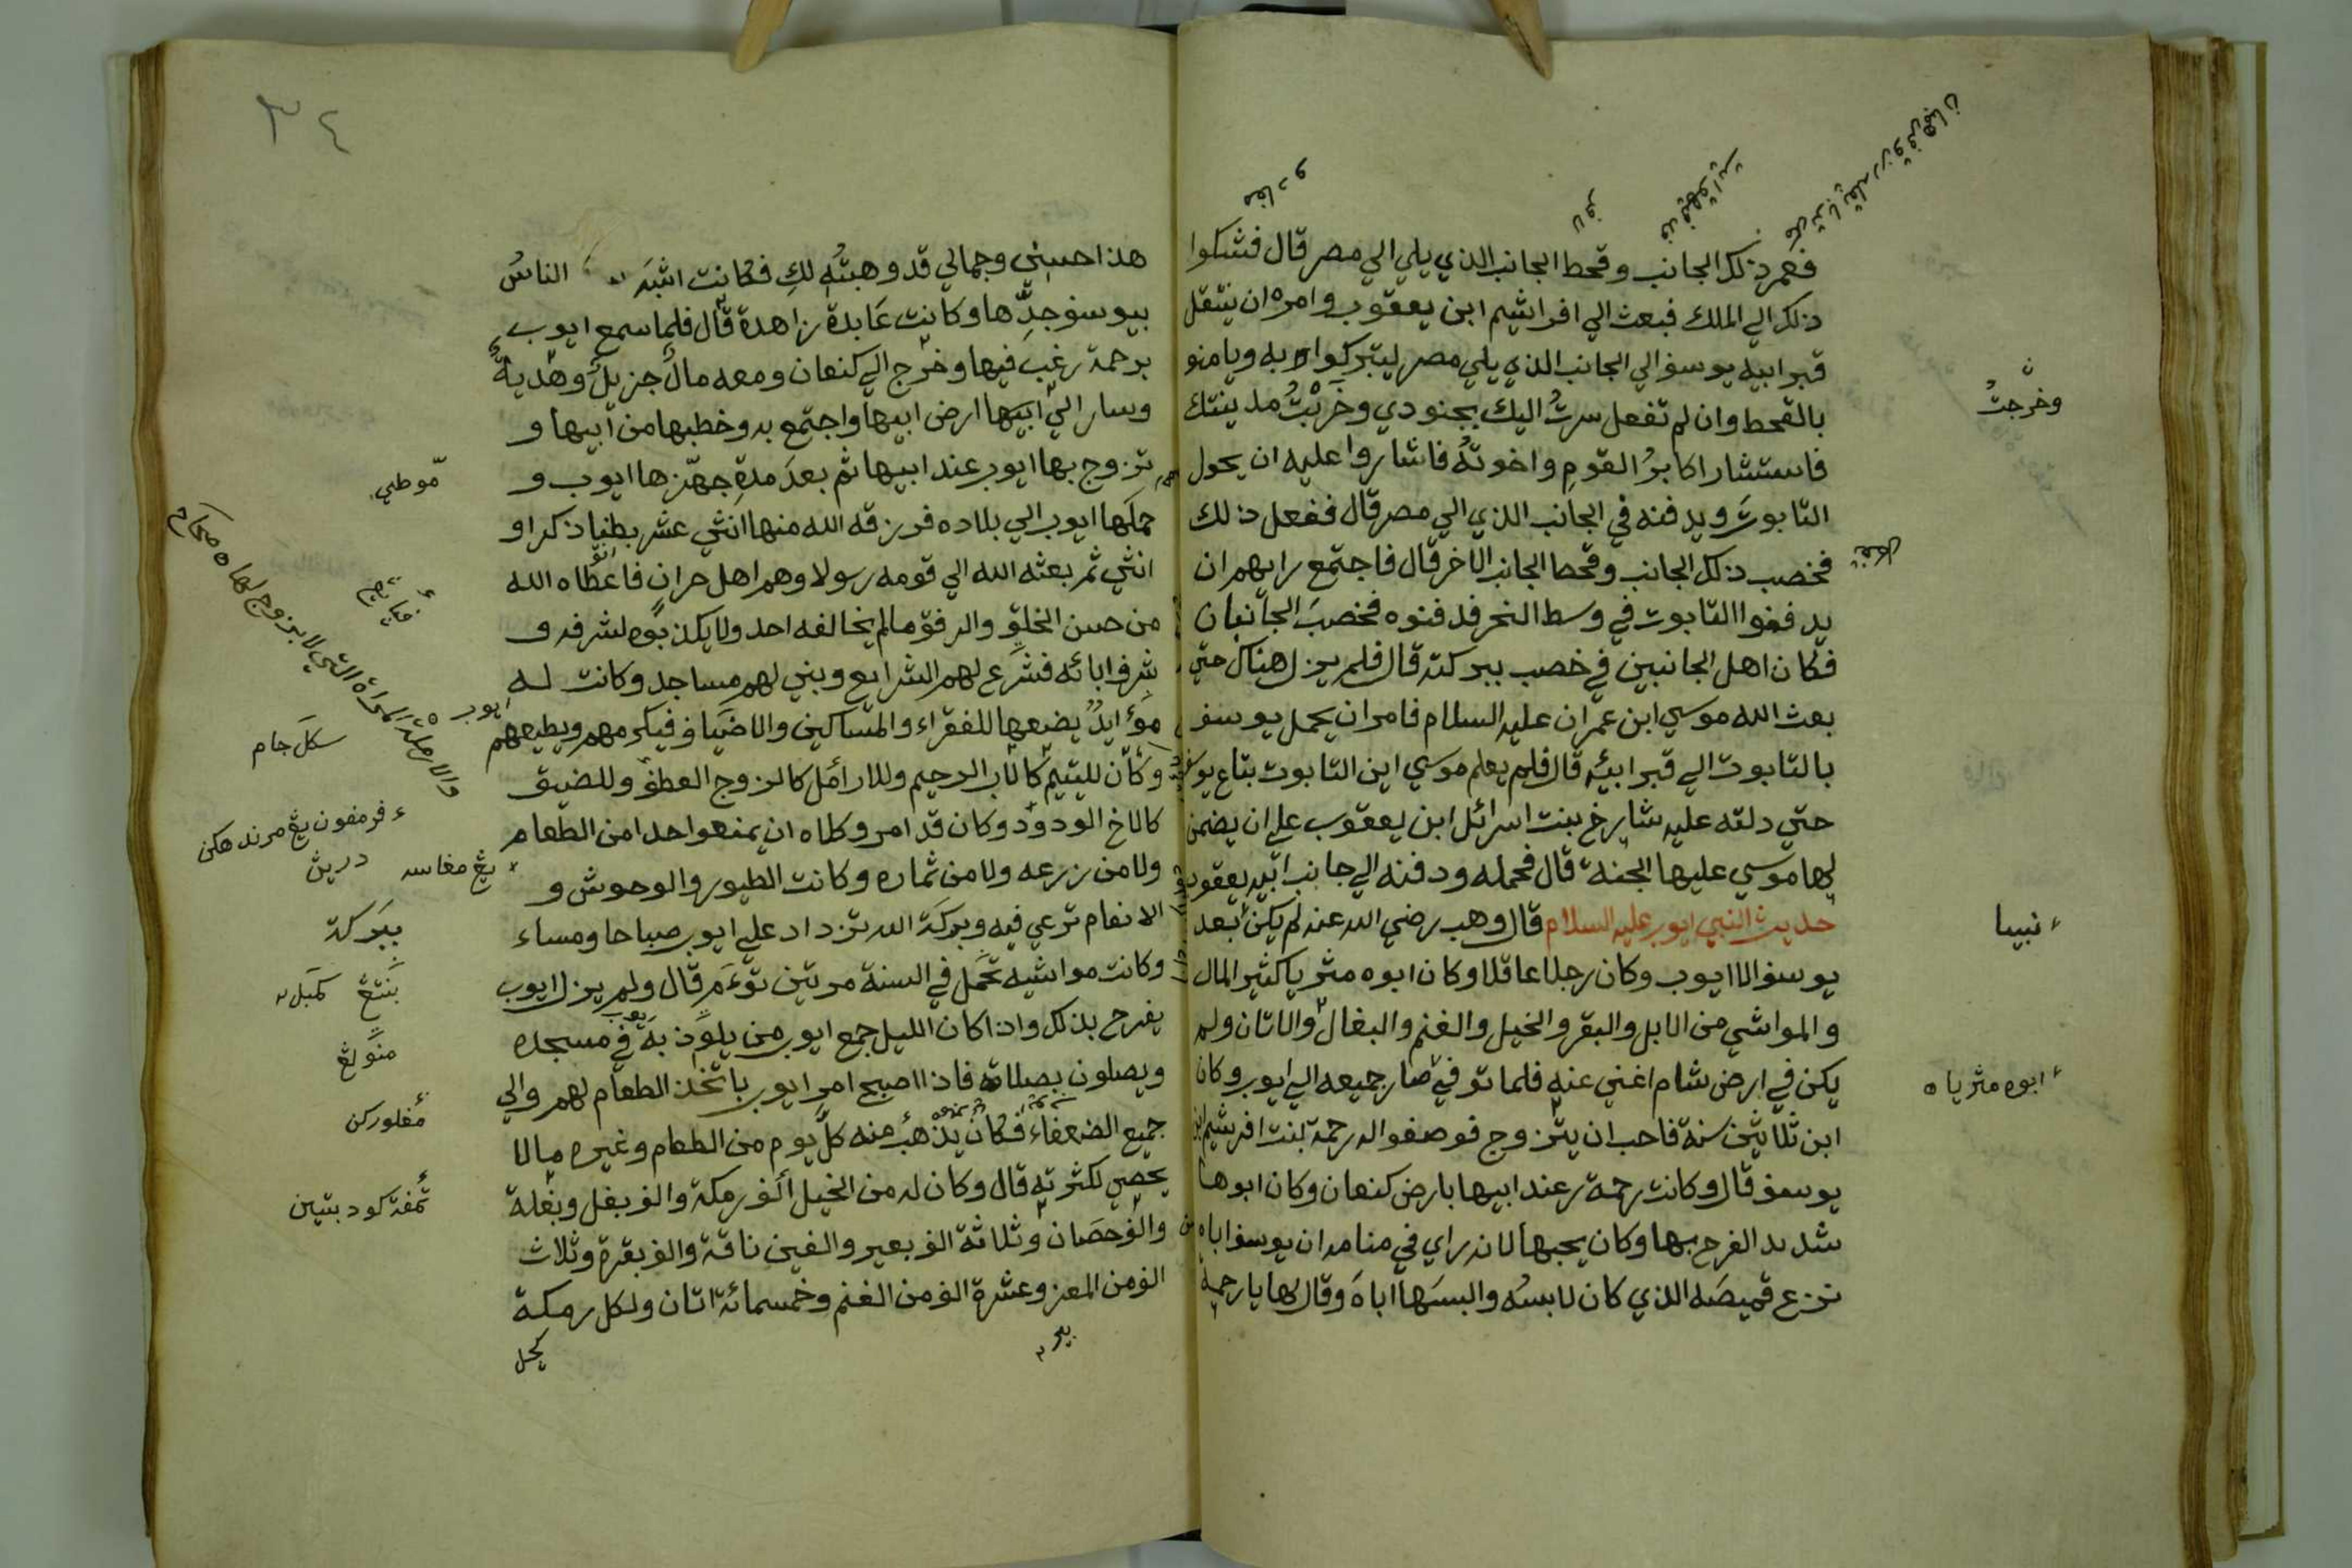 فعمر ذلك الجانب وقحط الجانب الذي يلي الي مصر قال فشكوا
ذلك الي الملك فبعث الي افراشيم ابن يعقوب وامره ان ينتقل
قبر ابيه يوسف الي الجانب الذي يلي مصر ليتبركوا به ويامنو
بالقحط وان لم تفعل سرتُ اليك بجنودي وخَرَبْتُ مدينتك
فاستشار اكابرُ القومِ واخوتهُ فاشاروا عليه ان يحول
التابوتَ ويدفنه في الجانب الذي الي مصر قال ففعل ذلك
فخصب ذلك الجانب وقحط الجانب الاخر قال فاجتمع رايهم ان
يدفنوا التابوت في وسط النحر فدفنوه فخصبَ الجانبان
فكان اهل الجانبين في خصب ببركته قال فلم يزل هناك حتي
بعث الله موسي ابن عمران عليه السلام فامر ان يحمل يوسف
بالتابوت الي قبر ابيه قال فلم يعلم موسي اين التابوت بتاع يوسف
حتي دلته عليه شايرخ بنت اسرائل ابن يعقوب علي ان يضمن
لها موسي عليها الجنة قال فحمله ودفنه الي جانب ابيه يعقوب
حديث النبي ايوب عليه السلام قال وهب رضي الله عنه لم يكن بعد
يوسف الا ايوب وكان رجلا عاقلا وكان ابوه مثريا كثير المال
والمواشي من الابل والبقر والخيل والغنم والبغال والاتان ولم
يكن في ارض شام اغني عنه فلما توفي صار جميعه الي ايوب وكان
ابن ثلاثين سنة فاحب ان يتزوج فوصفوا له رحمة بنت افرشيم ابن
يوسف قال وكانت رحمة عند ابيها بارض كنعان وكان ابوها
شديد الفرح بها وكان يحبها لانه راي في منامه ان يوسف اباه
نزع قميصَه الذي كان لابسهُ والبسَها اياهَ وقال لها يا رحمة
وخرجتُ
نبيا
ابوه مثرياه
هذا حسني وجمالي قد وهبتُه لكِ فكانت اشبَه الناسُ
بيوسف جدِّها وكانت عَابدة زاهدة قال فلما سمع ايوب
برحمة رغبَ فيها وخرج الي كنعان ومعه مالٌ جزيلٌ وهديةٌ
وسار الي ابيها ارض ابيها واجتمع به وخطبها من ابيها و
تزوج بها ايوب عند ابيها ثم بعدَ مدةِ جهّزها ايوب و
حملها ايوب الي بلاده فرزقه الله منها اثني عشر بطنا ذكرا و
انثي ثم بعثه الله الي قومه رسولا وهم اهل حران فاعطاه الله
من حسن الخلق والرفق ما لم يخالفه احد ولا يكذبوه لشرفه و
شرف ابائه فشرع لهم الشرايع وبني لهم مساجد وكانت له
موايد يضعها للفقراء والمساكين والاضياف فيكرمهم ويطيعهم
وكان لليتيم كالاب الرحيم وللارامل كالزوج العطف وللضيق
كالاخ الودود وكان قد امر وكلاه ان يمنعوا احدا من الطعام
ولا من زرعه ولا من ثماره وكانت الطيور والوحوش و
الانعام ترعي فيه وبركة الله تزداد علي ايوب صباحا ومساء
وكانت مواشيه تحمل في السنة مرتين توءَم قال ولم يزل ايوب
يفرح بذلك واذا كان الليل جمع ايوب من يلوذ به في مسجده
ويصلون بصلاته فاذا اصبح امر ايوب باتخذ الطعام لهم والي
جميع الضعفاء فكان يذهب منه كل يوم من الطعام وغيره مالا
يحصي لكثرته قال وكان له من الخيل الف رمكة والف بغل وبغلة
والف حصان وثلاثة الف بعير والفين ناقة والف بقرة وثلاث
الف من المعز وعشرة الف من الغنم وخمسمائة اتان ولكل رمكة
٣٤
موطي
سكل جام
فرمفون يڠ مرندهكن
يڠ مغاسه درين
ببركة
كمبل
منولڠ
مغلوركن